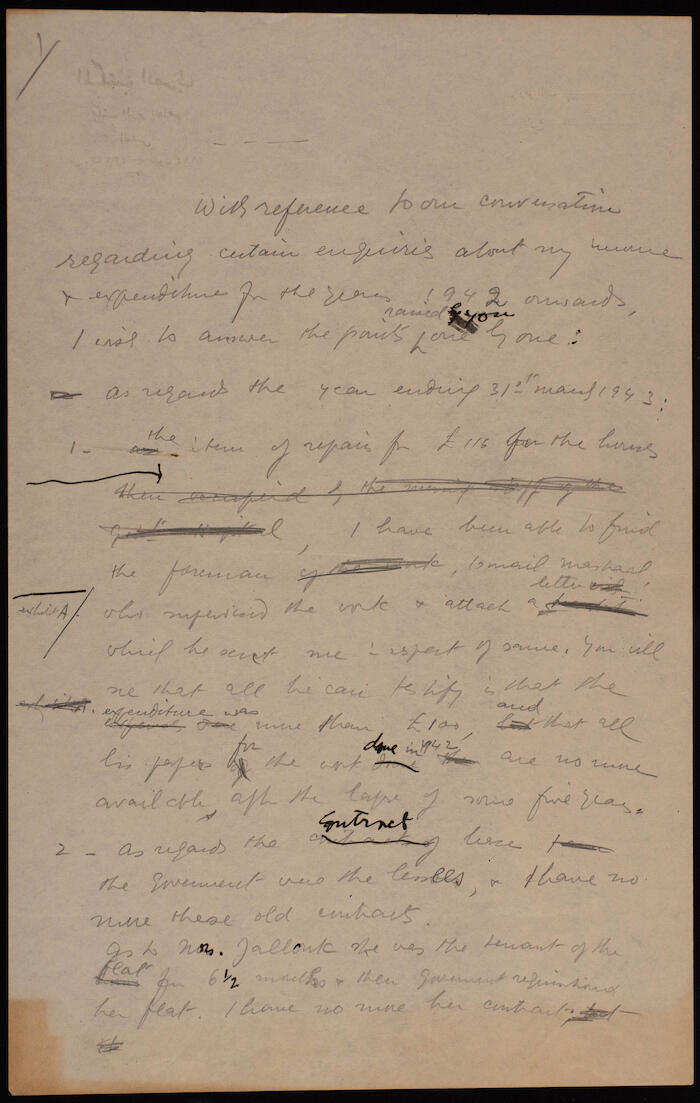 1/
With reference to our conversation
regarding certain enquiries about my income
& expenditure for the years 1942 onwards,
raised by you
I wish to answer the points one by one:
as regards the year ending 31st march 1943:
1- as the item of repairs for £116 for the houses
then occupied by the nursing staff of the
govt. hospital, I have been able to find
the foreman of the work, Ismail
letter
exhibit A.
who supervised the work & attach a
which he sent me in respect of same. You will
see that all he can testify is that the
exhibit expenditure was and
more than £100, but that all
for done in 1942
his papers of the work done are no more
available, after the lapse of some five years.
Contract
2 - as regards the contract of lease
the Government were the lessees, & I have no
more these old contracts.
As to Mrs. Jallouk she was the tenant of the
flat for 6½ months & then Government requisitioned
her flat. I have no more her contract, but